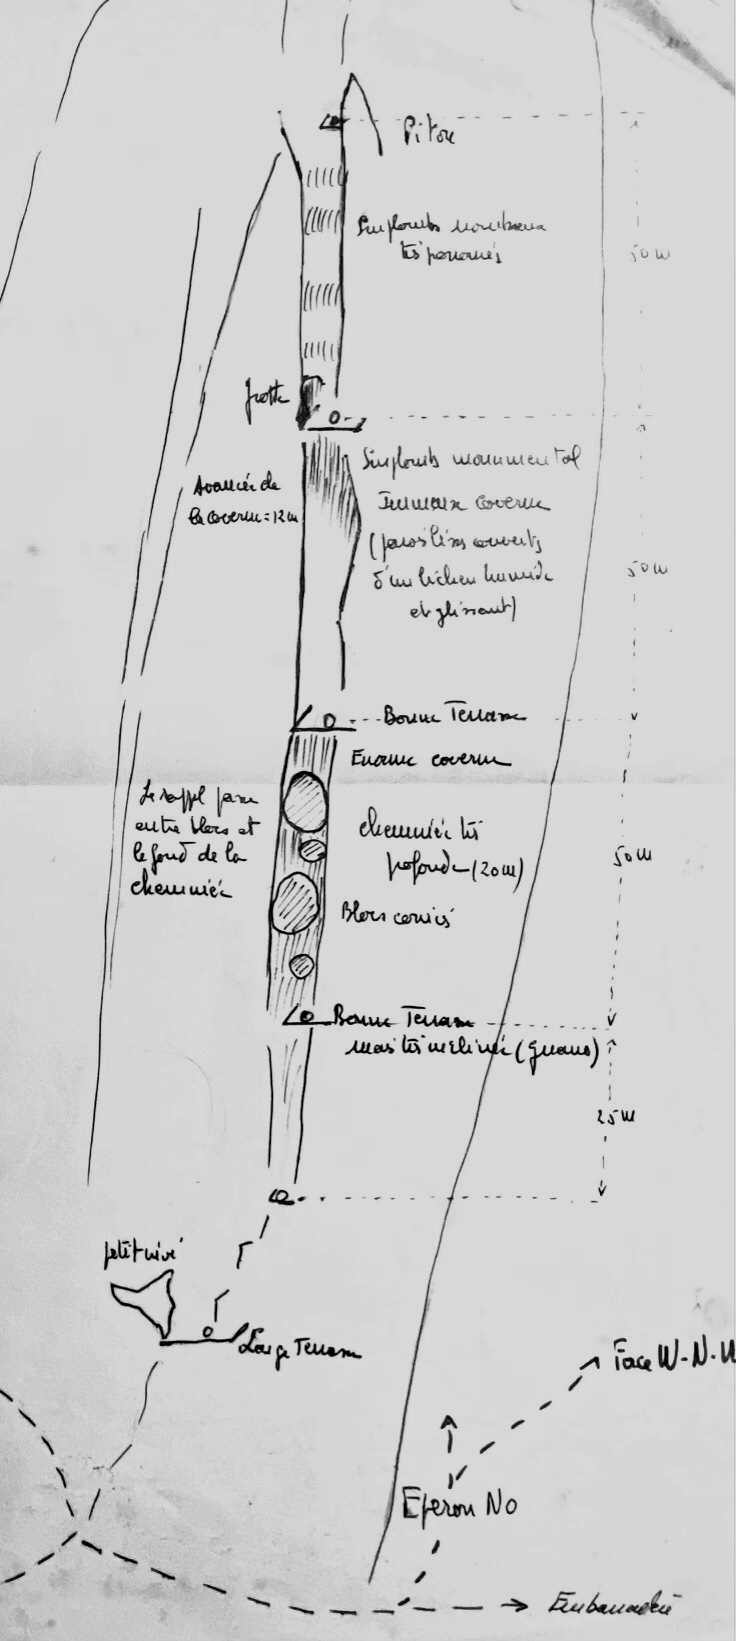 Piton
Surplombs nombreux
très prononcés
50m
grotte
Surplombs monumental
Avancée de
la caverne = 12m
Fameuse caverne
(parois lisses couverts
d'un lichen humide
et glissant)
50m
Bonne Terrasse
Enorme caverne
Le rappel passe
entre blocs et
le fond de la
cheminée
cheminée très
profonde (20m)
50m
Blocs coincés
Bonne Terrasse
mais très inclinée (guano)
25m
petit névé
Large Terrasse
Face W-N-W
Eperon NO